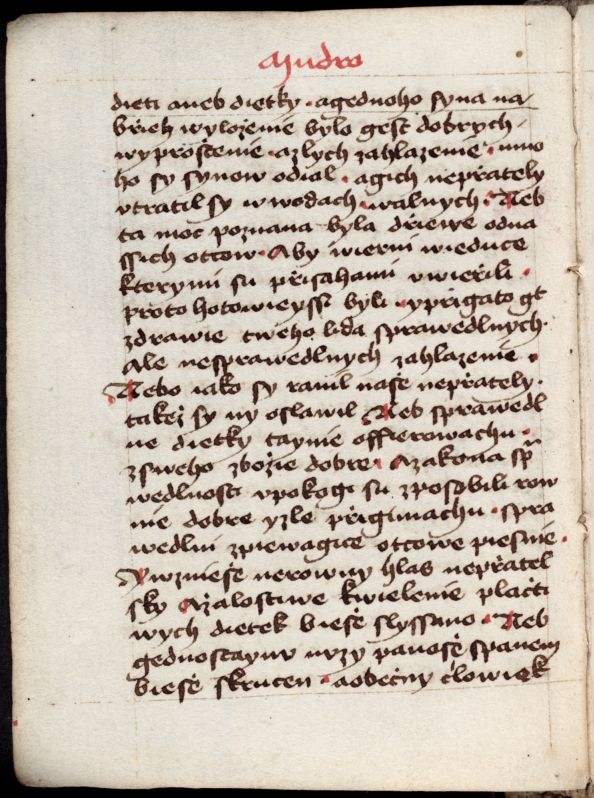 Mudro
dieti aneb dietky · agednoho syna na
břieh wyloženie bylo gest dobrych
wyproštenie · azlych zahlazenie · mno
ho sy synow odial · agich nepřately
vtratil sy wwodach · walnych · Neb
ta moc poznana byla dřiewe odna
ssich otcow · Aby wierni wieduce
kterymi su přisahami vwieřili ·
proto hotowieyssi byli · yprigato gt
zdrawie tweho lida sprawedlnych ·
Ale nesprawedlnych zahlazenie ·
Nebo iako sy ranil naše nepřately ·
takež sy ny oslawil Neb sprawedl
ne dietky taynie offierowachu ·
zsweho zbožie dobre · Azakona sp̃
wedlnosti vpokogi su zposobili row
nie dobre yzle přigimachu · spra
wedlni zpiewagice otcowe piesnie ·
Awznieše nerowny hlas nepřatel
sky Ažalostiwe kwielenie plačti
wych dietek bieše slyssano · Neb
gednostaynu mzy panoše spanem
bieše skrucen · aobečny člowiek